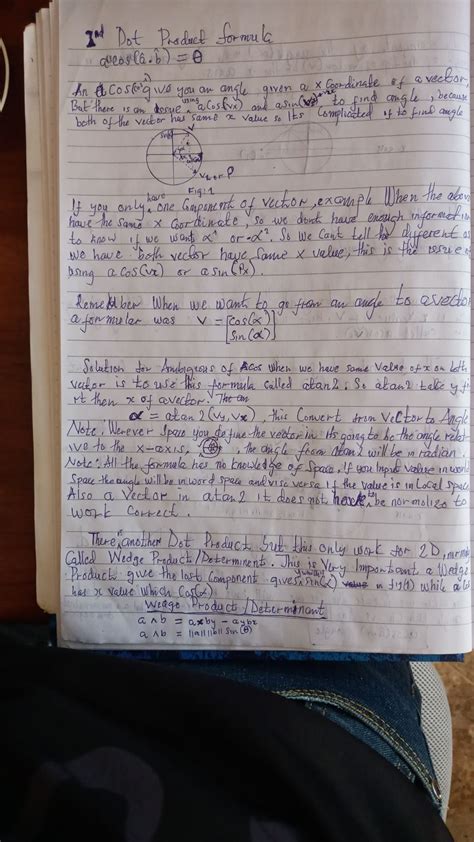 Dot Product formula
acos(â.b̂) = θ
An acos(x) give you an angle given a x Coordinate of a vector
But there is an issue using acos(vx) and asin( ) to find angle, because
both of the vector has same x value so its Complicated if to find angle
Fig:1
If you only have one Component of vector, example When the above
have the same x Coordinate, so we dont have enough informati
to know if we want α¹ or -α². So we Cant tell the different as
we have both vector have same x value, this is the issue o
using acos(vx) or asin(Px)
Remember When we want to go from an angle to a vector
a formular was v = [cos(α)
sin(α)]
Solution for Ambigeous of acos when we have same value of x on both
vector is to use this formula called atan2, So atan2 take y f
rt then x of a vector. The
α = atan2(vy, vx), this Convert from Vector to Angle
Note: Werever Space you define the vector in its going to be the angle relat
ive to the x-axis, the angle from atan2 will be in radian.
Note: All the formula has no knowledge of Space, if you input value in world
Space the angle will be in word space and vise versa if the value is in Local space
Also a Vector in atan2 it does not have to be normalize to
work correct.
There is another Dot Product but this only work for 2D,
Called Wedge Product/Determinent. This is Very Important a Wedge
Product give the last Component gives sin(x) while a
has x value which Cos(x)
Wedge Product/Determinant
a ∧ b = axby - aybx
a ∧ b = ||a|| ||b|| sin(θ)